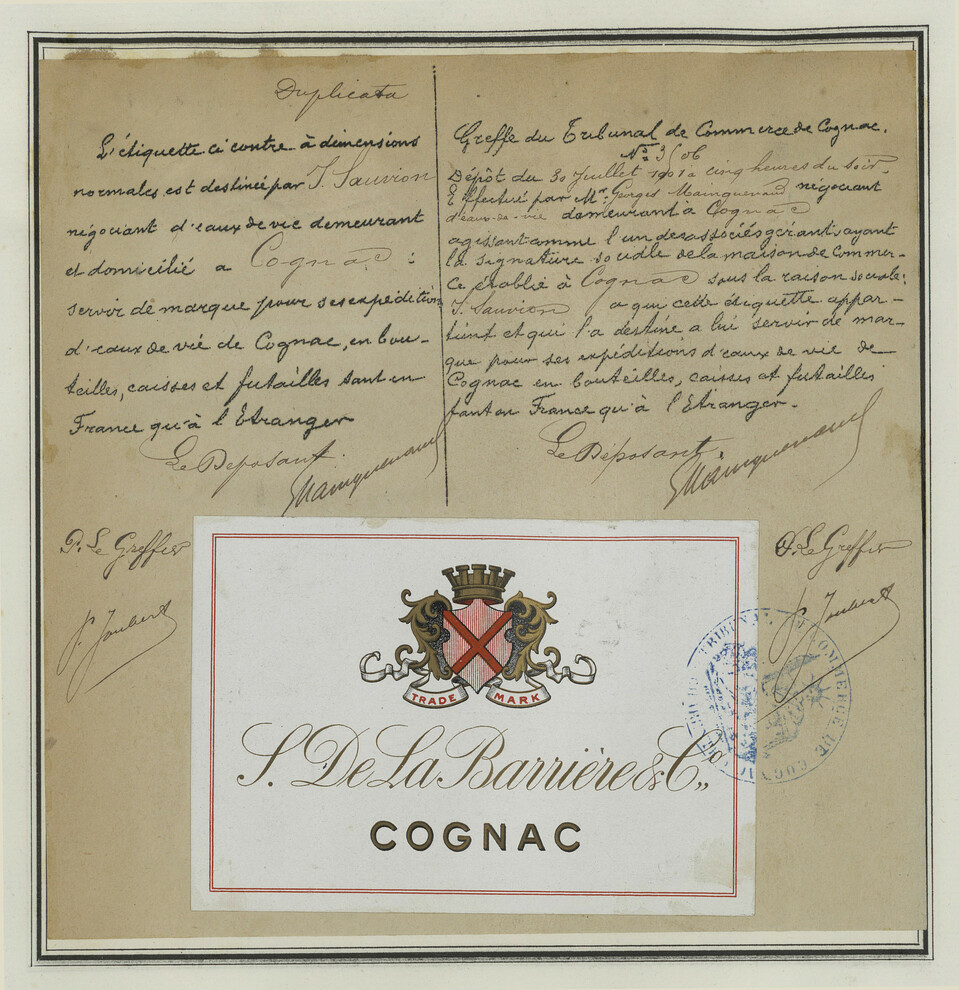 Duplicata
L'étiquette ci contre à dimensions
normales est destinée par J. Sauvion
négociant d'eaux de vie demeurant
et domicilié a Cognac :
servir de marque pour ses expédition
d'eaux de vie de Cognac, en bou-
teilles, caisses et futailles tant en
France qu'à l'Etranger
Le Déposant.
GMainguenaud
P. Le Greffier
P. Joubert
Greffe du Tribunal de Commerce de Cognac.
Dépôt du 30 Juillet 1901 à cinq heures du soir
Effectué par Mr. Georges Mainguenaud négociant
d'eaux-de-vie demeurant à Cognac
agissant comme l'un des associés gérants ayant
la signature sociale de la maison de Commer-
ce établie à Cognac sous la raison sociale:
J. Sauvion a qui cette étiquette appar-
tient et qui l'a destine a lui servir de mar-
que pour ses expéditions d'eaux de vie de
Cognac en bouteilles, caisses et futailles
tant en France qu'à l'Etranger.
Le Déposant.
GMainguenaud
P. Le Greffier
P. Joubert
TRADE MARK
S. De La Barrière & Co,,
COGNAC
TRIBUNAL DE COMMERCE DE COGNAC